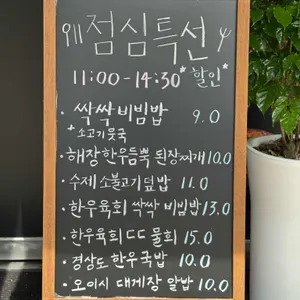 점심특선
11:00-14:30 *할인*
· 싹싹 비빔밥 9.0
*소고기뭇국
· 해장한우듬뿍 된장찌개 10.0
· 수제 소불고기 덮밥 11.0
· 한우육회 싹싹 비빔밥 13.0
· 한우육회 ㄷㄷ 물회 15.0
· 경상도 한우국밥 10.0
· 오이시 대게장 알밥 10.0